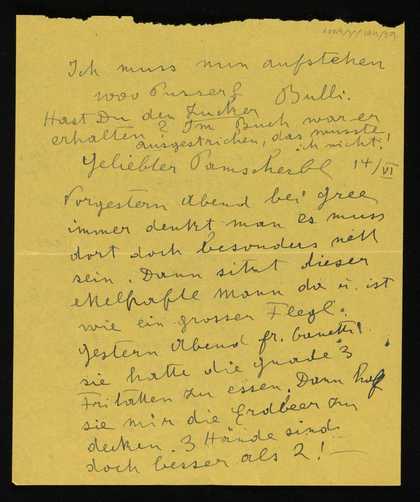 Ich muss nun aufstehen
wow Pusserl Bulli.
Hast Du den Zucker
erhalten? Im Buch war er
ausgestrichen, das wusste
ich nicht!
Geliebter Pamscherl 14/VI
Vorgestern Abend bei Gree
immer denkt man es muss
dort doch besonders nett
sein. Dann sitzt dieser
ekelhafte Mann da u. ist
wie ein grosser Flegl.
Gestern Abend fr.
sie hatte die Gnade 3
Fritatten zu essen. Dann half
sie mir die Erdbeer zu
decken. 3 Hände sind
doch besser als 2!